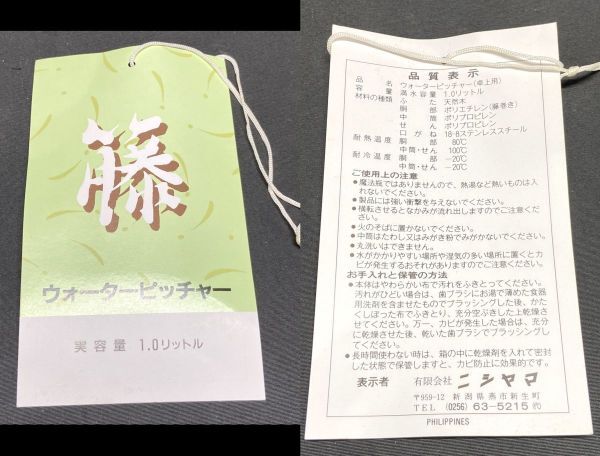 藤
ウォーターピッチャー
実容量 1.0リットル
品質表示
品名 ウォーターピッチャー(卓上用)
容量 満水容量 1.0リットル
材料の種類 ふた 天然木
胴部 ポリエチレン(籐巻き)
中筒 ポリプロピレン
せん ポリプロピレン
口がね 18-8ステンレススチール
耐熱温度 胴部 80℃
中筒・せん 100℃
耐冷温度 胴部 -20℃
中筒・せん -20℃
ご使用上の注意
●魔法瓶ではありませんので、熱湯など熱いものは入
れないでください。
●製品には強い衝撃を与えないでください。
●横転させるとなかみが流れ出しますのでご注意くだ
さい。
●火のそばに置かないでください。
●中筒はたわし又はみがき粉でみがかないでください。
●丸洗いはできません。
●水がかかりやすい場所や湿気の多い場所に置くとカ
ビが発生するおそれがありますのでご注意ください。
お手入れと保管の方法
●本体はやわらかい布で汚れをふきとってください。
汚れがひどい場合は、歯ブラシにお湯で薄めた食器
用洗剤を含ませたものでブラッシングした後、かた
くしぼった布でふきとり、充分空ぶきした上乾燥さ
せてください。万一、カビが発生した場合は、充分
に乾燥させた後、乾いた歯ブラシでブラッシングし
てください。
●長時間使わない時は、箱の中に乾燥剤を入れて密封
した状態で保管しますと、カビ防止に効果的です。
表示者 有限会社 ニシヤマ
〒959-12 新潟県燕市新生町
TEL (0256) 63-5215 ㈹
PHILIPPINES